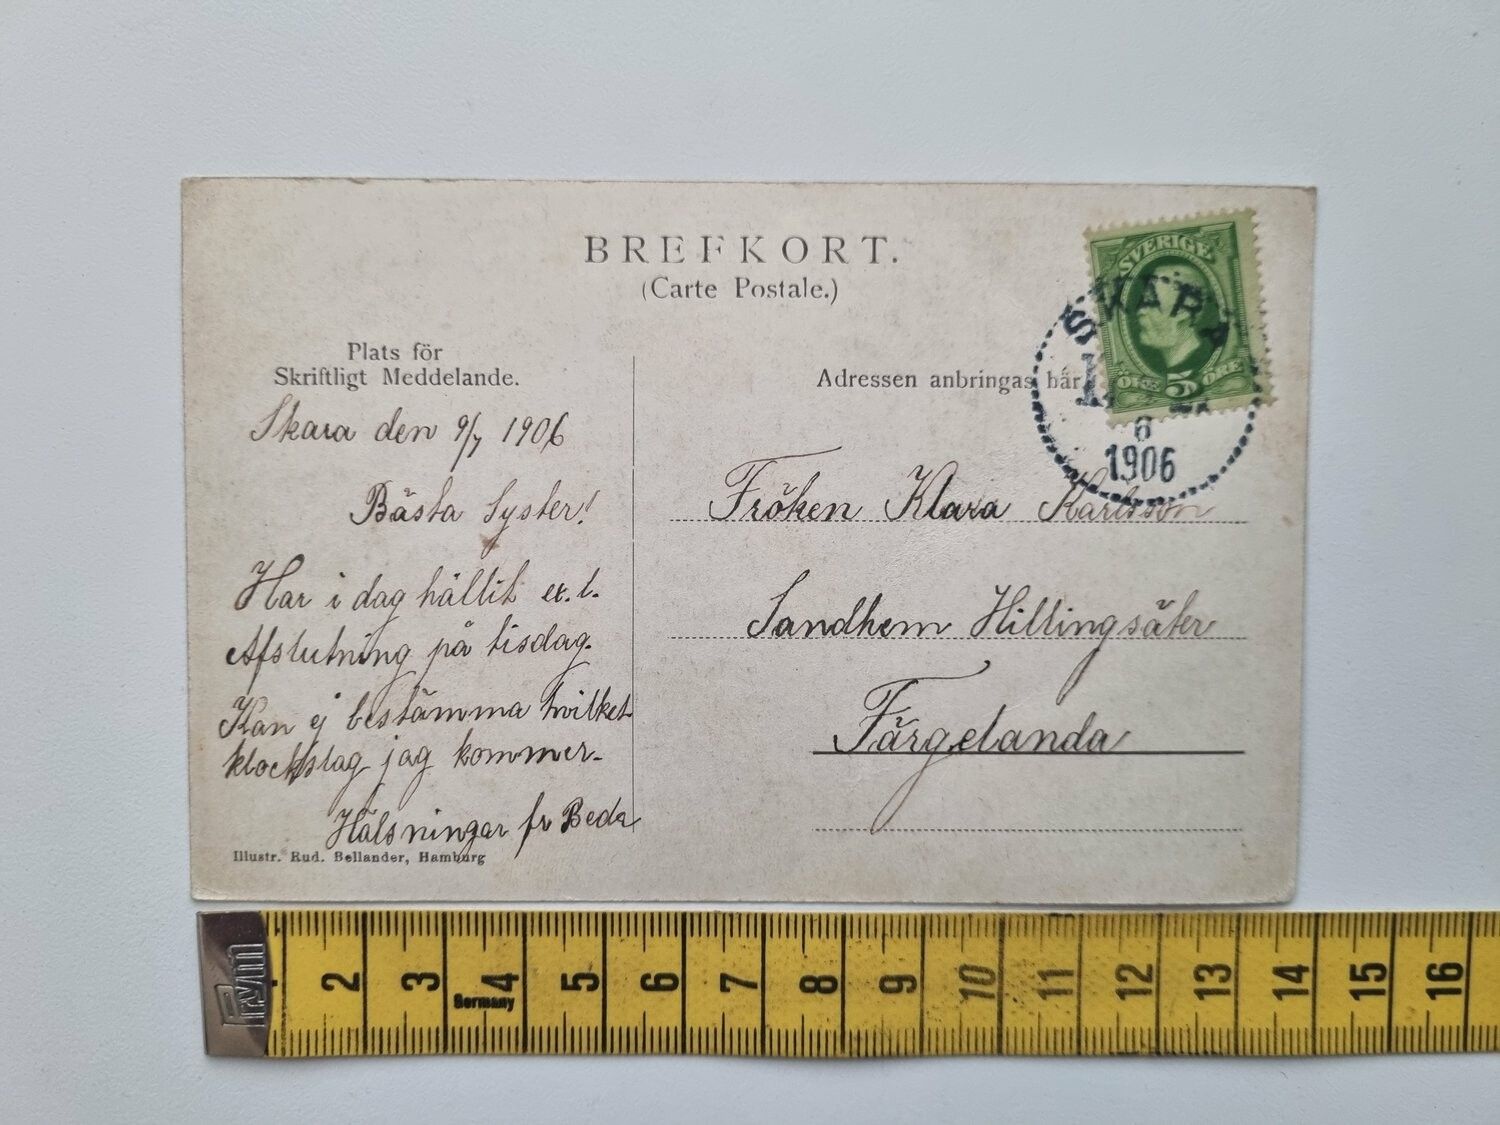 BREFKORT.
(Carte Postale.)
SVERIGE
ÖRE 5 ÖRE
SKARA
6
1906
Plats för
Skriftligt Meddelande.
Skara den 9/7 1906
Bästa Syster!
Har i dag hållit ex. t.
Afslutning på tisdag.
Kan ej bestämma hvilket
klockslag jag kommer.
Hälsningar fr Beda
Illustr. Rud. Bellander, Hamburg
Adressen anbringas här
Fröken Klara Karlsson
Sandhem Hillingsäter
Färgelanda
Prym
2 3 4 5 6 7 8 9 10 11 12 13 14 15 16
Germany